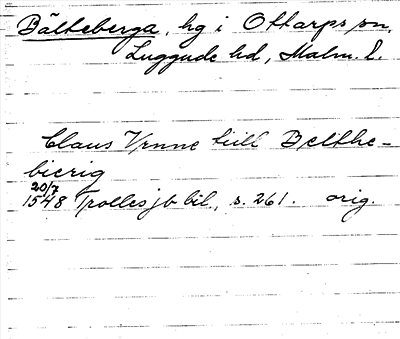 Bälteberga, hg i Ottarps sn,
Luggude hd, Malm. l.
Claus Vrnne tiill Belthe-
bierig
20/7
1548 Trollesjb bil, s. 261. orig.